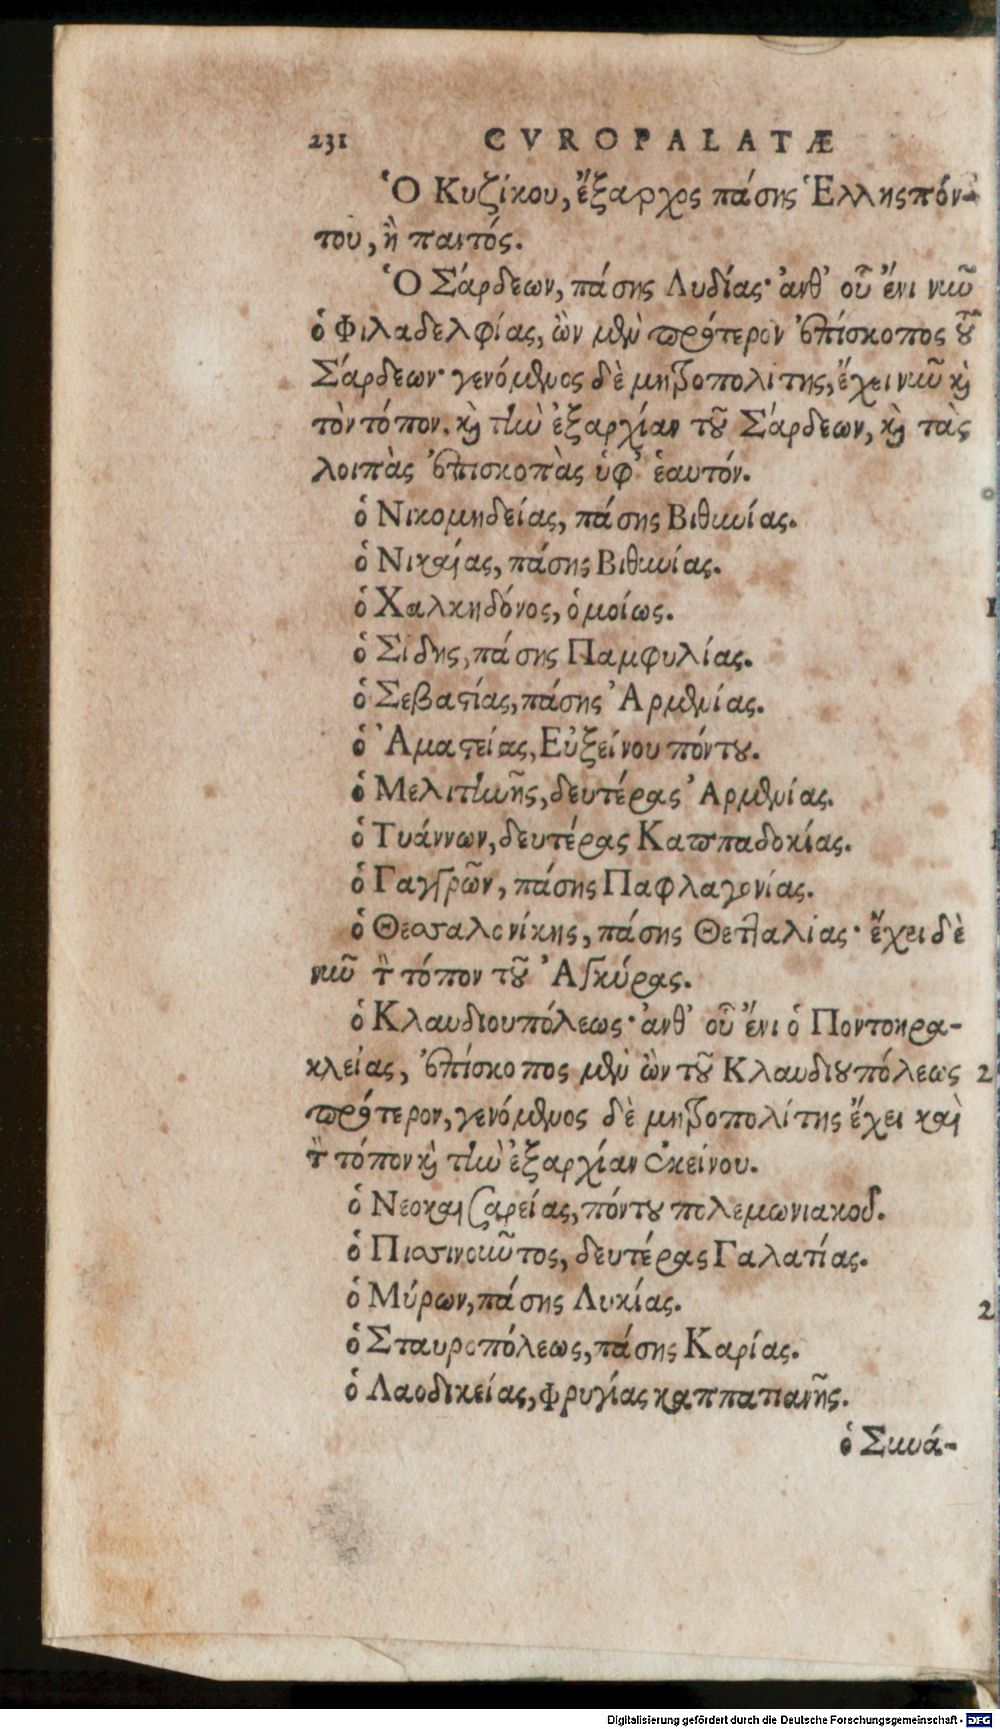 231 CVROPALATÆ
Ὁ Κυζίκου, ἔξαρχος πάσης Ἑλλησπόν-
του, ἢ παντός.
Ὁ Σάρδεων, πάσης Λυδίας· ἀνθ' οὗ ἔνι νιῦ
ὁ Φιλαδελφίας, ὢν μὲν πρότερον ἐπίσκοπος τοῦ
Σάρδεων· γενόμενος δὲ μητροπολίτης, ἔχει νῦν καὶ
τὸν τόπον. καὶ τὴν ἐξαρχίαν τοῦ Σάρδεων, καὶ τὰς
λοιπὰς ἐπισκοπὰς ὑφ' ἑαυτόν.
ὁ Νικομηδείας, πάσης Βιθυνίας.
ὁ Νικαίας, πάσης Βιθυνίας.
ὁ Χαλκηδόνος, ὁμοίως.
ὁ Σίδης, πάσης Παμφυλίας.
ὁ Σεβαστίας, πάσης Ἀρμενίας.
ὁ Ἀμαστείας, Εὐξείνου πόντου.
ὁ Μελιτηνῆς, δευτέρας Ἀρμενίας.
ὁ Τυάννων, δευτέρας Καππαδοκίας.
ὁ Γαγγρῶν, πάσης Παφλαγονίας.
ὁ Θεσσαλονίκης, πάσης Θετταλίας· ἔχει δὲ
νῦν τὸν τόπον τοῦ Ἀγκύρας.
ὁ Κλαυδιουπόλεως· ἀνθ' οὗ ἔνι ὁ Ποντοηρα-
κλείας, ἐπίσκοπος μὲν ὢν τοῦ Κλαυδιουπόλεως
πρότερον, γενόμενος δὲ μητροπολίτης ἔχει καὶ
τὸν τόπον καὶ τὴν ἐξαρχίαν ἐκείνου.
ὁ Νεοκαισαρείας, πόντου πολεμωνιακοῦ.
ὁ Πισσινοῦντος, δευτέρας Γαλατίας.
ὁ Μύρων, πάσης Λυκίας.
ὁ Σταυροπόλεως, πάσης Καρίας.
ὁ Λαοδικείας, Φρυγίας καππατιανῆς.
ὁ Συνά-
Digitalisierung gefördert durch die Deutsche Forschungsgemeinschaft - DFG